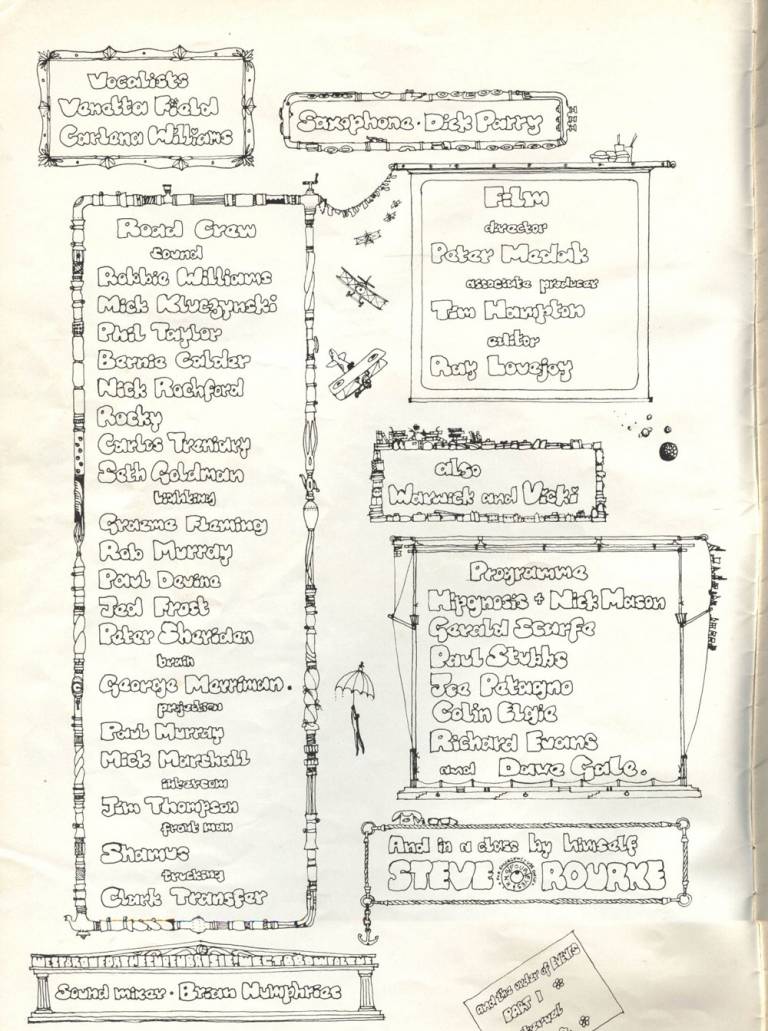 Vocalists
Venetta Field
Carlena Williams
Saxophone · Dick Parry
Road Crew
sound
Robbie Williams
Mick Kluczynski
Phil Taylor
Bernie Calder
Nick Rochford
Rocky
Carlos Treniary
Seth Goldman
lighting
Graeme Fleming
Rob Murray
Paul Devine
Jed Frost
Peter Sheriden
brain
George Merriman.
projection
Paul Murray
Mick Marshall
intercom
Jim Thompson
front man
Shamus
trucking
Clark Transfer
Sound mixer · Brian Humphries
Film
director
Peter Medak
associate producer
Tim Hampton
editor
Ray Lovejoy
also
Warwick and Vicki
Programme
Hipgnosis + Nick Mason
Gerald Scarfe
Paul Stubbs
Joe Petagno
Colin Elgie
Richard Evans
and Dave Gale.
And in a class by himself
STEVE O'ROURKE
and the order of EVENTS
PART 1